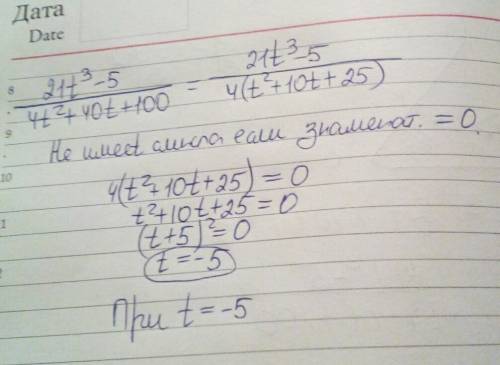 Дата
Date
8
21t³-5 / 4t²+40t+100 = 21t³-5 / 4(t²+10t+25)
9
Не имеет смысла если знаменат. = 0.
10
4(t²+10t+25) = 0
t²+10t+25 = 0
1
(t+5)² = 0
t = -5
При t = -5